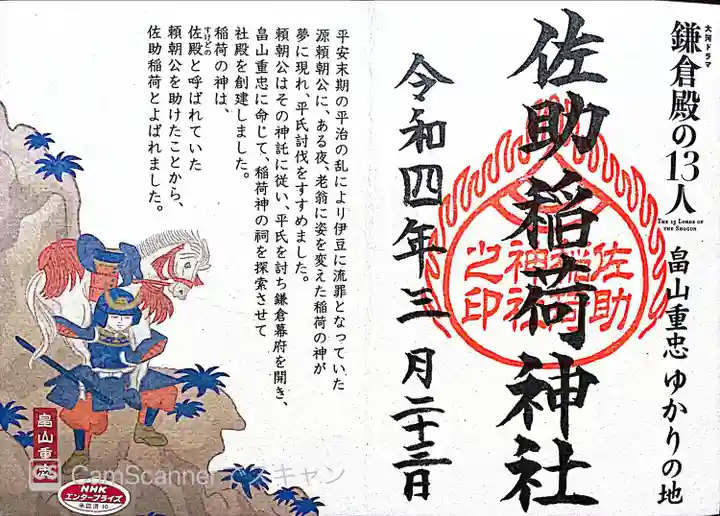 大河ドラマ
鎌倉殿の13人
THE 13 LORDS OF
THE SHOGUN
畠山重忠 ゆかりの地
佐助稲荷神社
佐助
稲荷
神社
之印
令和四年三月二十三日
平安末期の平治の乱により伊豆に流罪となっていた
源頼朝公に、ある夜、老翁に姿を変えた稲荷の神が
夢に現れ、平氏討伐をすすめました。
頼朝公はその神託に従い、平氏を討ち鎌倉幕府を開き、
畠山重忠に命じて、稲荷神の祠を探索させて
社殿を創建しました。
稲荷の神は、
すけどの
佐殿と呼ばれていた
頼朝公を助けたことから、
佐助稲荷とよばれました。
畠山重忠
NHK
エンタープライズ
CS CamScanner スキャン